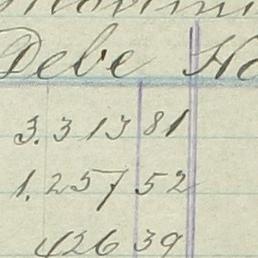 Debe
3.313 81
1.257 52
426 39